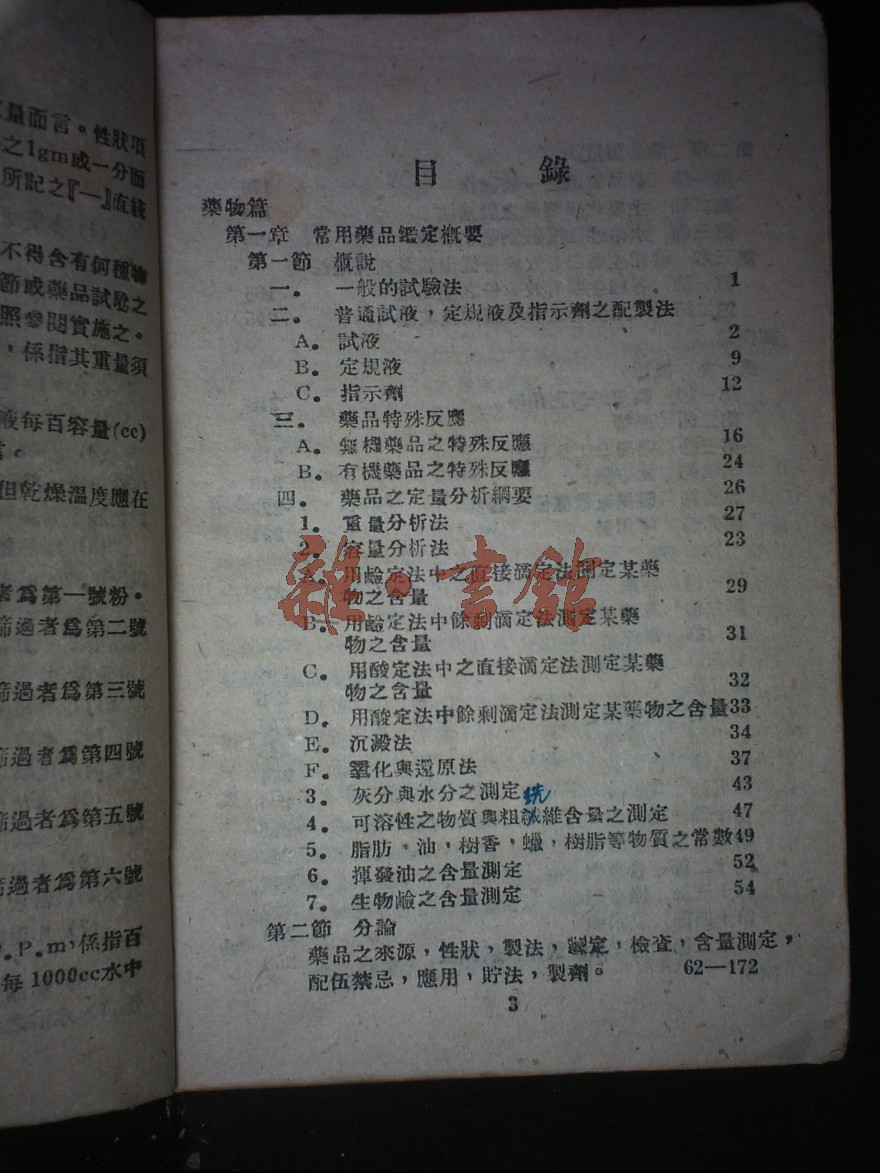 量而言。性狀項
之1gm或一分而
所記之『—』直綫
不得含有何種物
節或藥品試驗之
照參閱實施之。
，係指其重量須
液每百容量(cc)
言。
但乾燥溫度應在
者爲第一號粉。
篩過者爲第二號
篩過者爲第三號
篩過者爲第四號
篩過者爲第五號
篩過者爲第六號
P.P.m，係指百
每1000cc水中
目 錄
藥物篇
第一章 常用藥品鑑定概要
第一節 概說
一． 一般的試驗法 1
二． 普通試液，定規液及指示劑之配製法
A． 試液 2
B． 定規液 9
C． 指示劑 12
三． 藥品特殊反應
A． 無機藥品之特殊反應 16
B． 有機藥品之特殊反應 24
四． 藥品之定量分析綱要 26
1． 重量分析法 27
2． 容量分析法 23
A． 用鹼定法中之直接滴定法測定某藥
物之含量 29
B． 用鹼定法中餘剩滴定法測定某藥
物之含量 31
C． 用酸定法中之直接滴定法測定某藥
物之含量 32
D． 用酸定法中餘剩滴定法測定某藥物之含量33
E． 沉澱法 34
F． 氧化與還原法 37
3． 灰分與水分之測定 43
4． 可溶性之物質與粗纖維含量之測定 47
5． 脂肪、油，樹香，蠟，樹脂等物質之常數49
6． 揮發油之含量測定 52
7． 生物鹼之含量測定 54
第二節 分論
藥品之來源，性狀，製法，鑑定，檢查，含量測定，
配伍禁忌，應用，貯法，製劑。 62—172
3
雜·書館